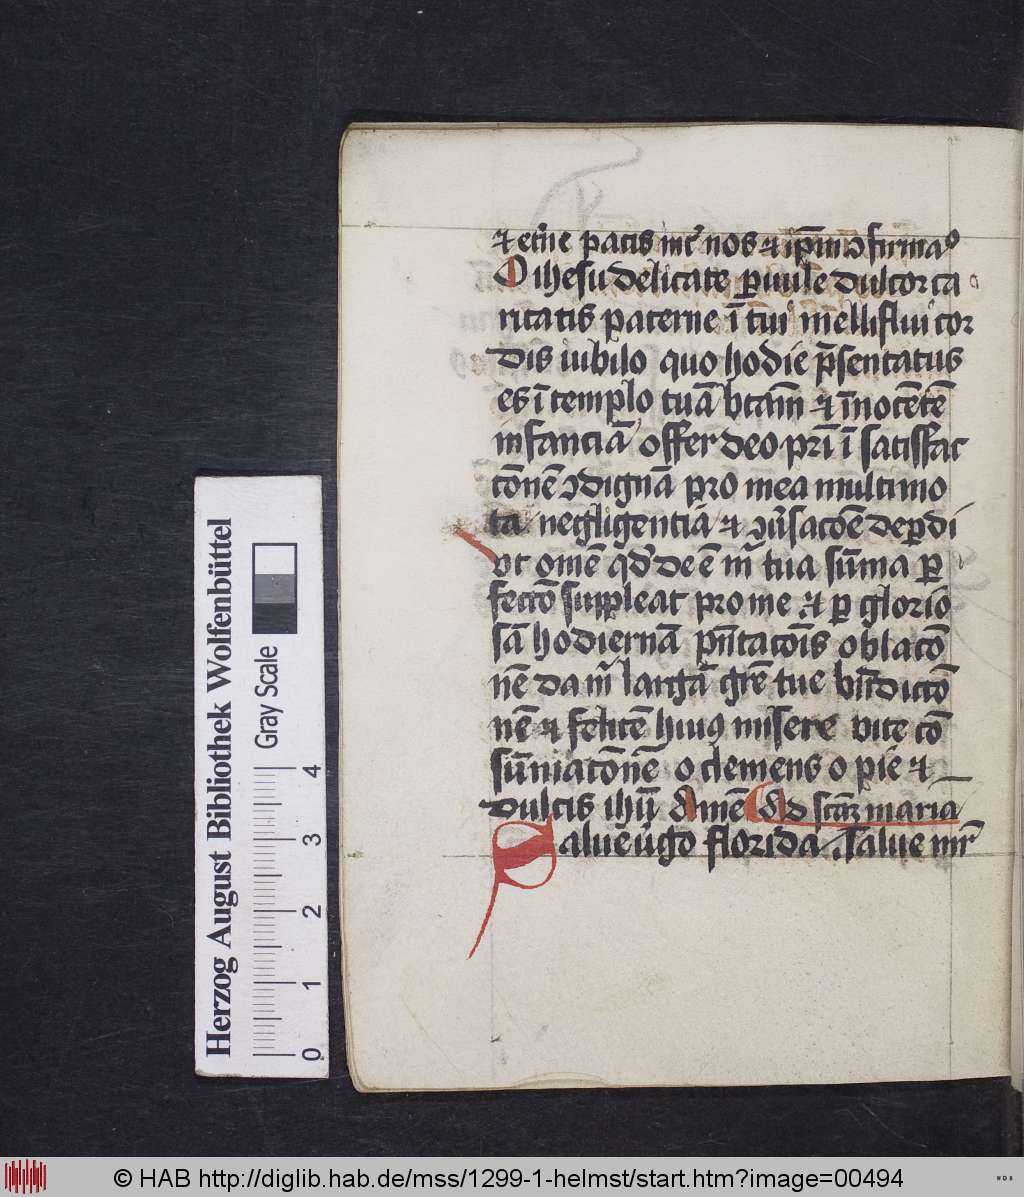 ⁊ et͛ne pacis int͛ nos ⁊ ip̅m ꝯfirma
O ihesu delicate puule dulcor ca
ritatis paterne ī tui mellifluī cor
dis iubilo quo hodie p̄sentatus
es ī templo tuā btām ⁊ īnocētē
infanciā offer deo pr̄i ī satisfac
cōnē ꝯdignā pro mea multimo
ta negligentiā ⁊ ꝯu͛sacōē deꝑdi
vt om̄ē qd̓ deē m̓ tua sūma ꝑ
fectō suppleat pro me ⁊ ꝑ glorio
sā hodiernā pn̄tacōis oblacō
nē da m̓ largā gr̄e tue bn̄dictō
nē ⁊ felicē huiꝰ misere vite cō
sūmacōnē o clemens o pie ⁊
dulcis ihū Amē Ad sctāꝫ maria
Salue v̓go florida Salue mr̄
Herzog August Bibliothek Wolfenbüttel
Gray Scale
0 1 2 3 4
© HAB http://diglib.hab.de/mss/1299-1-helmst/start.htm?image=00494